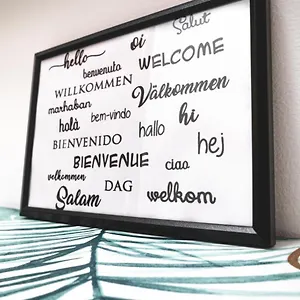 Salut
oi
hello
WELCOME
benvenuto
WILLKOMMEN
Välkommen
marhaban
bem-vindo
hi
holà
hallo
hej
BIENVENIDO
BIENVENUE
ciao
welkommen
DAG
welkom
Salam